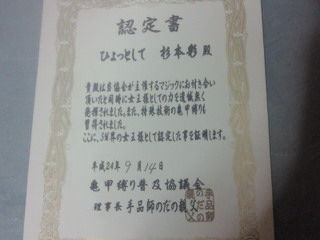 認定書
ひょっとして 杉本彩 殿
貴殿は当協会が主催するマジックにお付き合い
頂いたと同時に女王様としての力を遺憾無く
発揮されました。また、特殊技術の亀甲縛りも
習得されました。
ここに、SM界の女王様として認定した事を証明します。
平成24年9月14日
亀甲縛り普及協議会
理事長 手品師のだの親父